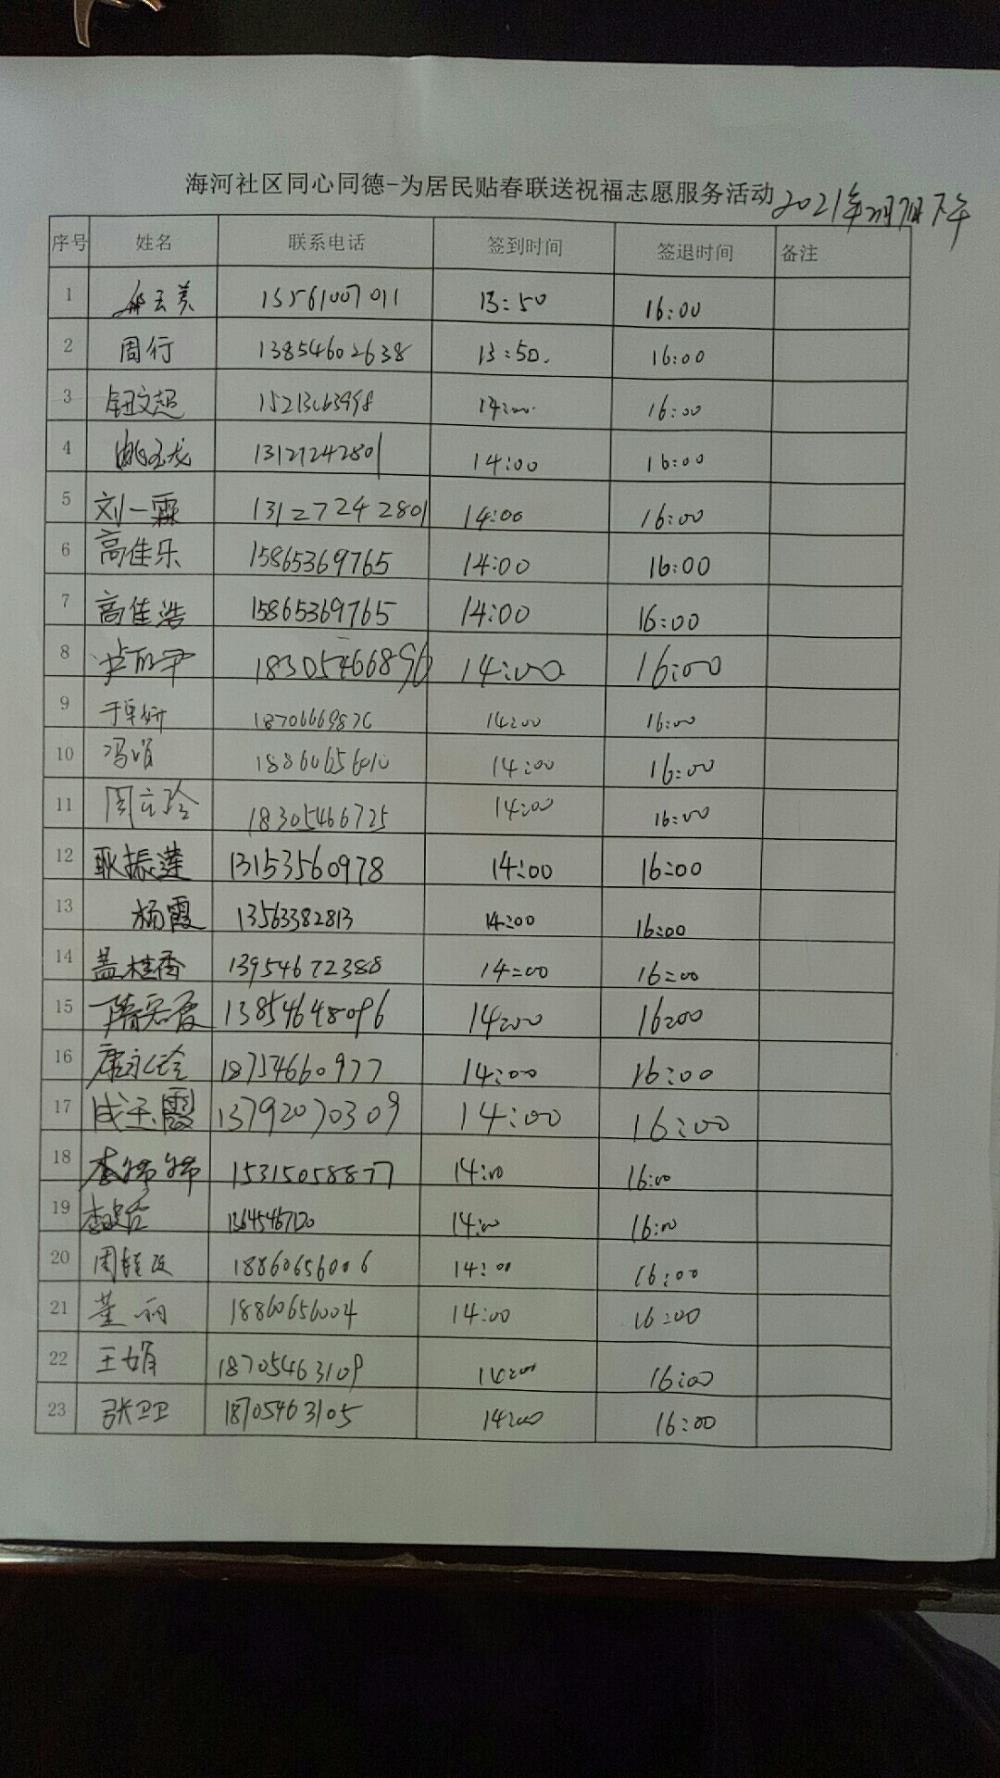 海河社区同心同德-为居民贴春联送祝福志愿服务活动 2021年2月7日下午
序号 姓名 联系电话 签到时间 签退时间 备注
1 15561007011 13:50 16:00
2 周行 13854602638 13:50. 16:00
3 钮文超 15213663998 14:00 16:00
4 姚玉龙 13127242801 14:00 16:00
5 刘一霖 13127242801 14:00 16:00
6 高佳乐 15865369765 14:00 16:00
7 高佳浩 15865369765 14:00 16:00
8 18305466896 14:00 16:00
9 于卓妍 18706669876 14:00 16:00
10 冯娟 18860656010 14:00 16:00
11 周立玲 18305466725 14:00 16:00
12 耿振莲 13153560978 14:00 16:00
13 杨霞 13563382813 14:00 16:00
14 盖桂香 13954672388 14:00 16:00
15 13854648096 14:00 16:00
16 康永玲 18754660977 14:00 16:00
17 成玉霞 13792070309 14:00 16:00
18 李娜娜 15315058877 14:00 16:00
19 13645467120 14:00 16:00
20 18860656006 14:00 16:00
21 董丽 18860656004 14:00 16:00
22 王娟 18705463109 14:00 16:00
23 张卫卫 18705463105 14:00 16:00